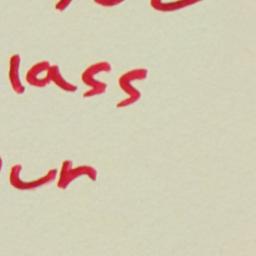 lass
un